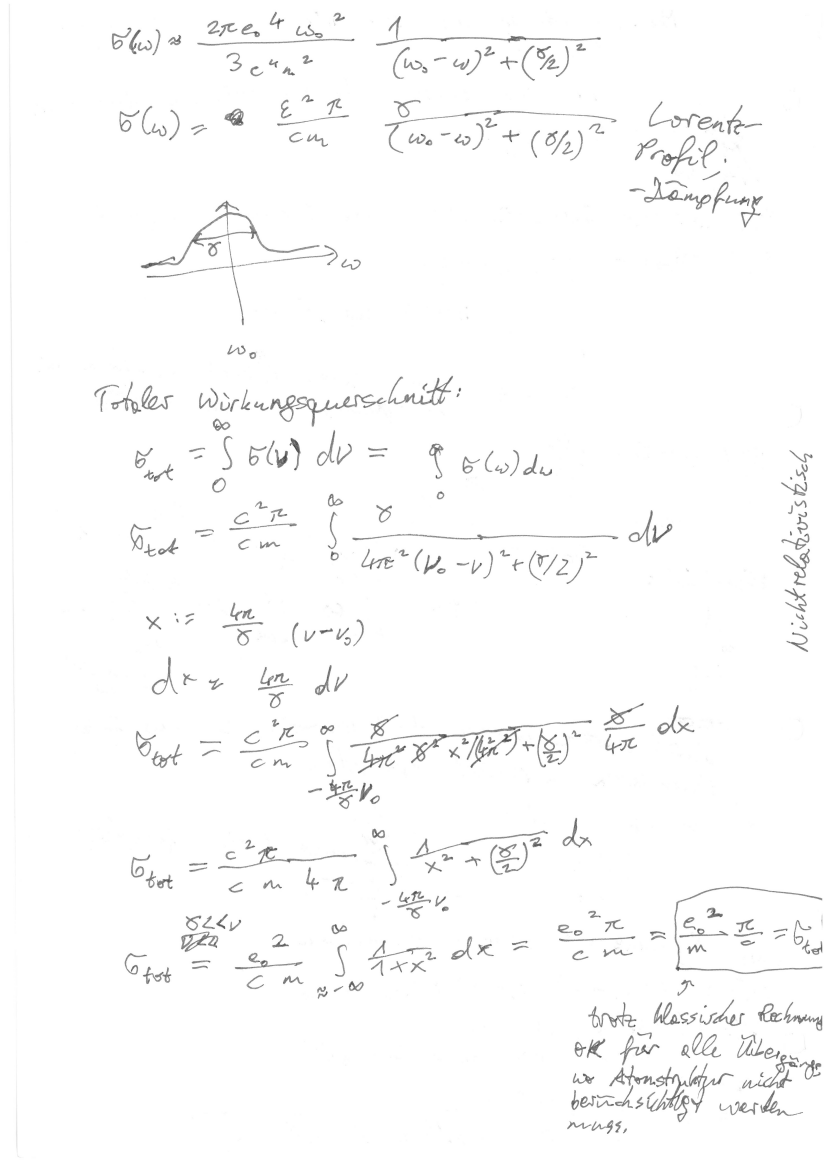 σ(ω) ≈ 2πe₀⁴ω₀² / 3c⁴m² · 1 / ((ω₀ - ω)² + (γ/2)²)
σ(ω) = ε²π / cm · γ / ((ω₀ - ω)² + (γ/2)²)
Lorentz-
Profil,
- Dämpfung
γ
ω
ω₀
Totaler Wirkungsquerschnitt:
σ_tot = ∫₀^∞ σ(ν) dν = ∫₀^∞ σ(ω) dω
σ_tot = c²π / cm ∫₀^∞ γ / (4π²(ν₀ - ν)² + (γ/2)²) dν
Nichtrelativistisch
x := 4π/γ (ν - ν₀)
dx = 4π/γ dν
σ_tot = c²π / cm ∫_{-4π/γ ν₀}^∞ γ / (4π² γ² x²/(4²π²) + (γ/2)²) γ/4π dx
σ_tot = c²π / c m 4π ∫_{-4π/γ ν₀}^∞ 1 / (x² + (γ/2)²) dx
γ<<ν
σ_tot = e₀² / c m ∫_{≈-∞}^∞ 1/(1+x²) dx = e₀²π / c m = e₀²/m · π/c = σ_tot
trotz klassischer Rechnung
OK für alle Übergänge
wo Atomstruktur nicht
berücksichtigt werden
muss.